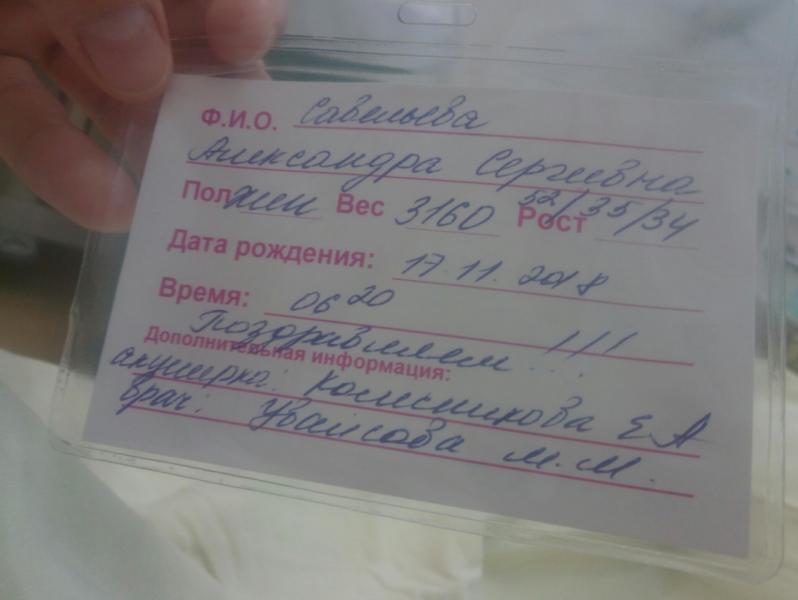 Ф.И.О. Савельева
Александра Сергеевна
Пол жен Вес 3160 Рост 52/35/34
Дата рождения: 17.11.2018
Время: 06 20
Поздравляем !!!
Дополнительная информация:
акушерка: Колесникова Е А
врач: Уваисова М.М.